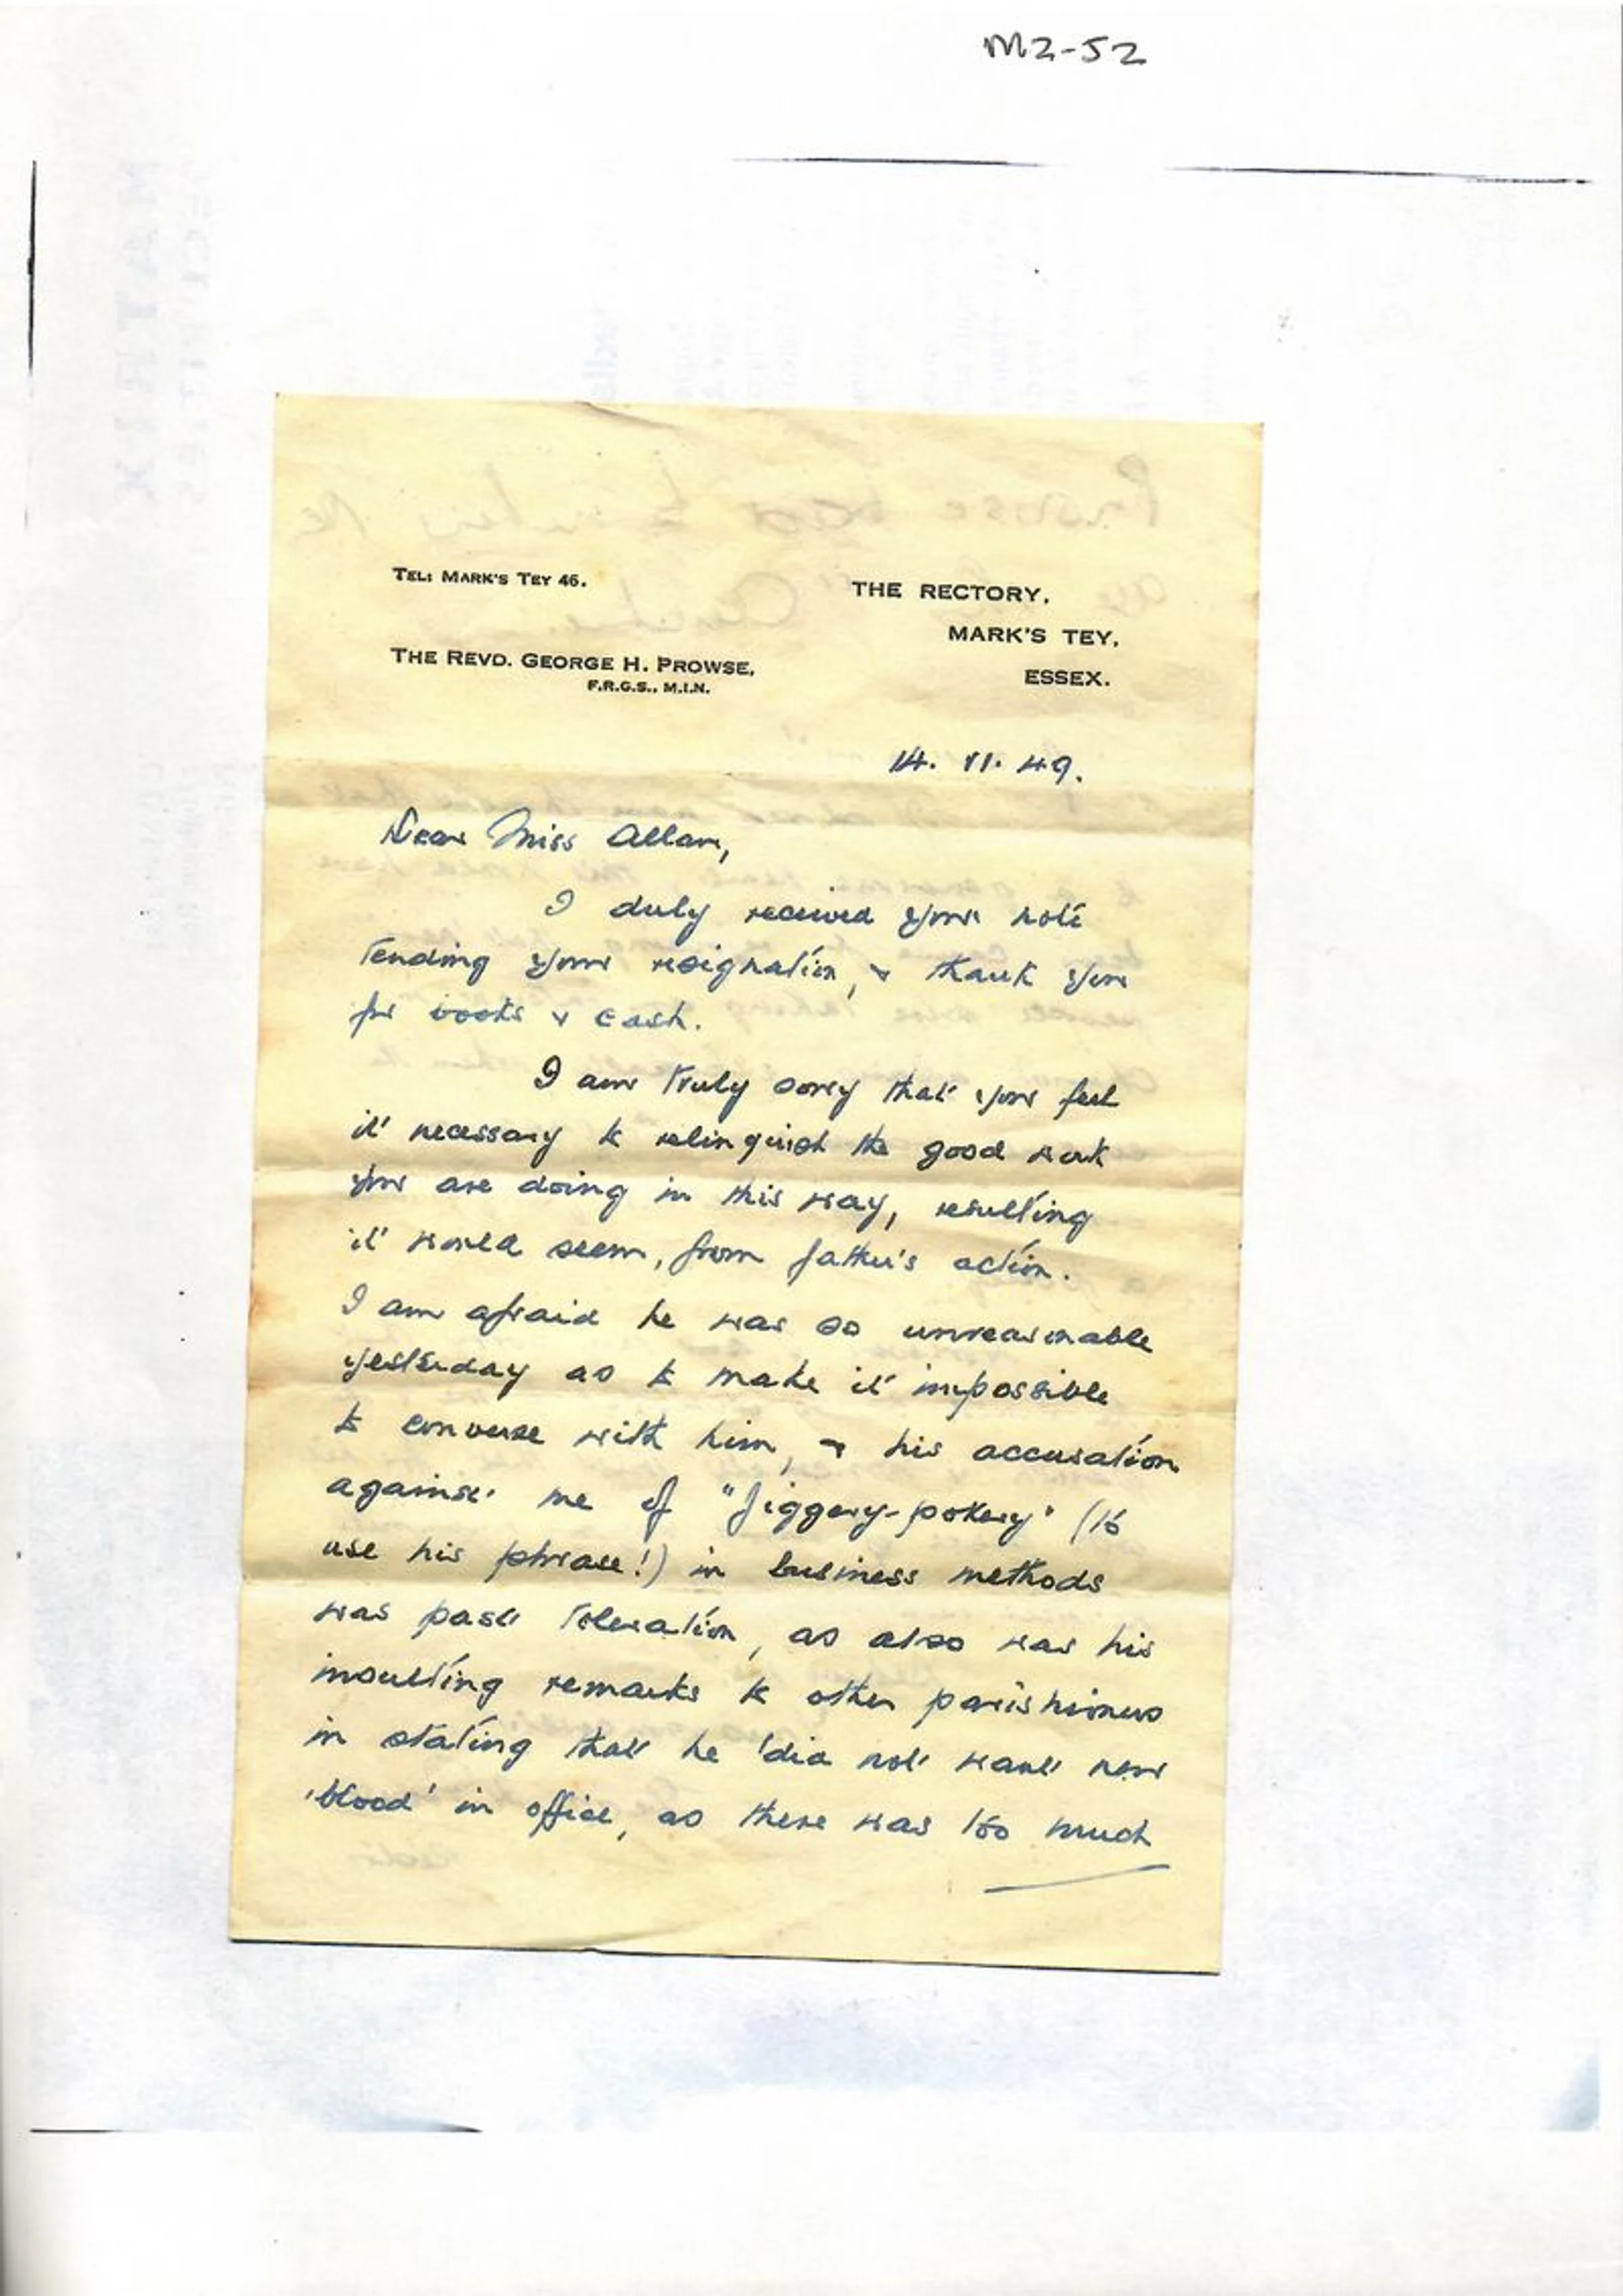 M2-52
TEL: MARK'S TEY 46.
THE RECTORY,
MARK'S TEY,
ESSEX.
THE REVD. GEORGE H. PROWSE,
F.R.G.S., M.I.N.
14. 11. 49.
Dear Miss Allan,
I duly received your note
tending your resignation, & thank you
for books & cash.
I am truly sorry that you feel
it necessary to relinquish the good work
you are doing in this way, resulting
it would seem, from father's action.
I am afraid he was so unreasonable
yesterday as to make it impossible
to converse with him, & his accusation
against me of "jiggery-pokery" (to
use his phrase!) in business methods
was past toleration, as also was his
insulting remarks to other parishioners
in stating that he 'did not want new
'blood' in office, as there was too much